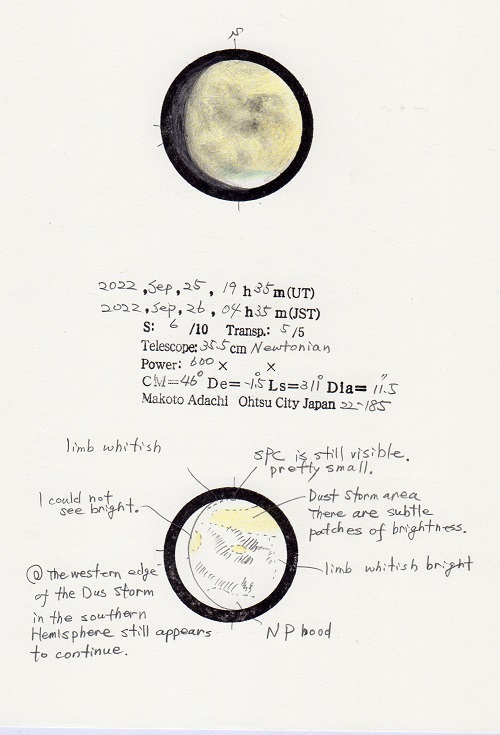 S
2022, Sep, 25, 19 h 35 m (UT)
2022, Sep, 26, 04 h 35 m (JST)
S: 6 /10 Transp.: 5 /5
Telescope: 35.5 cm Newtonian
Power: 600 × ×
CM=46° De= -1.5 Ls=311° Dia= 11.5"
Makoto Adachi Ohtsu City Japan 22-185
limb whitish
SPC is still visible.
pretty small.
I could not
see bright.
Dust Storm area
There are subtle
patches of brightness.
limb whitish bright
@ The western edge
of the Dus Storm
in the southern
Hemisphere still appears
to continue.
NP hood